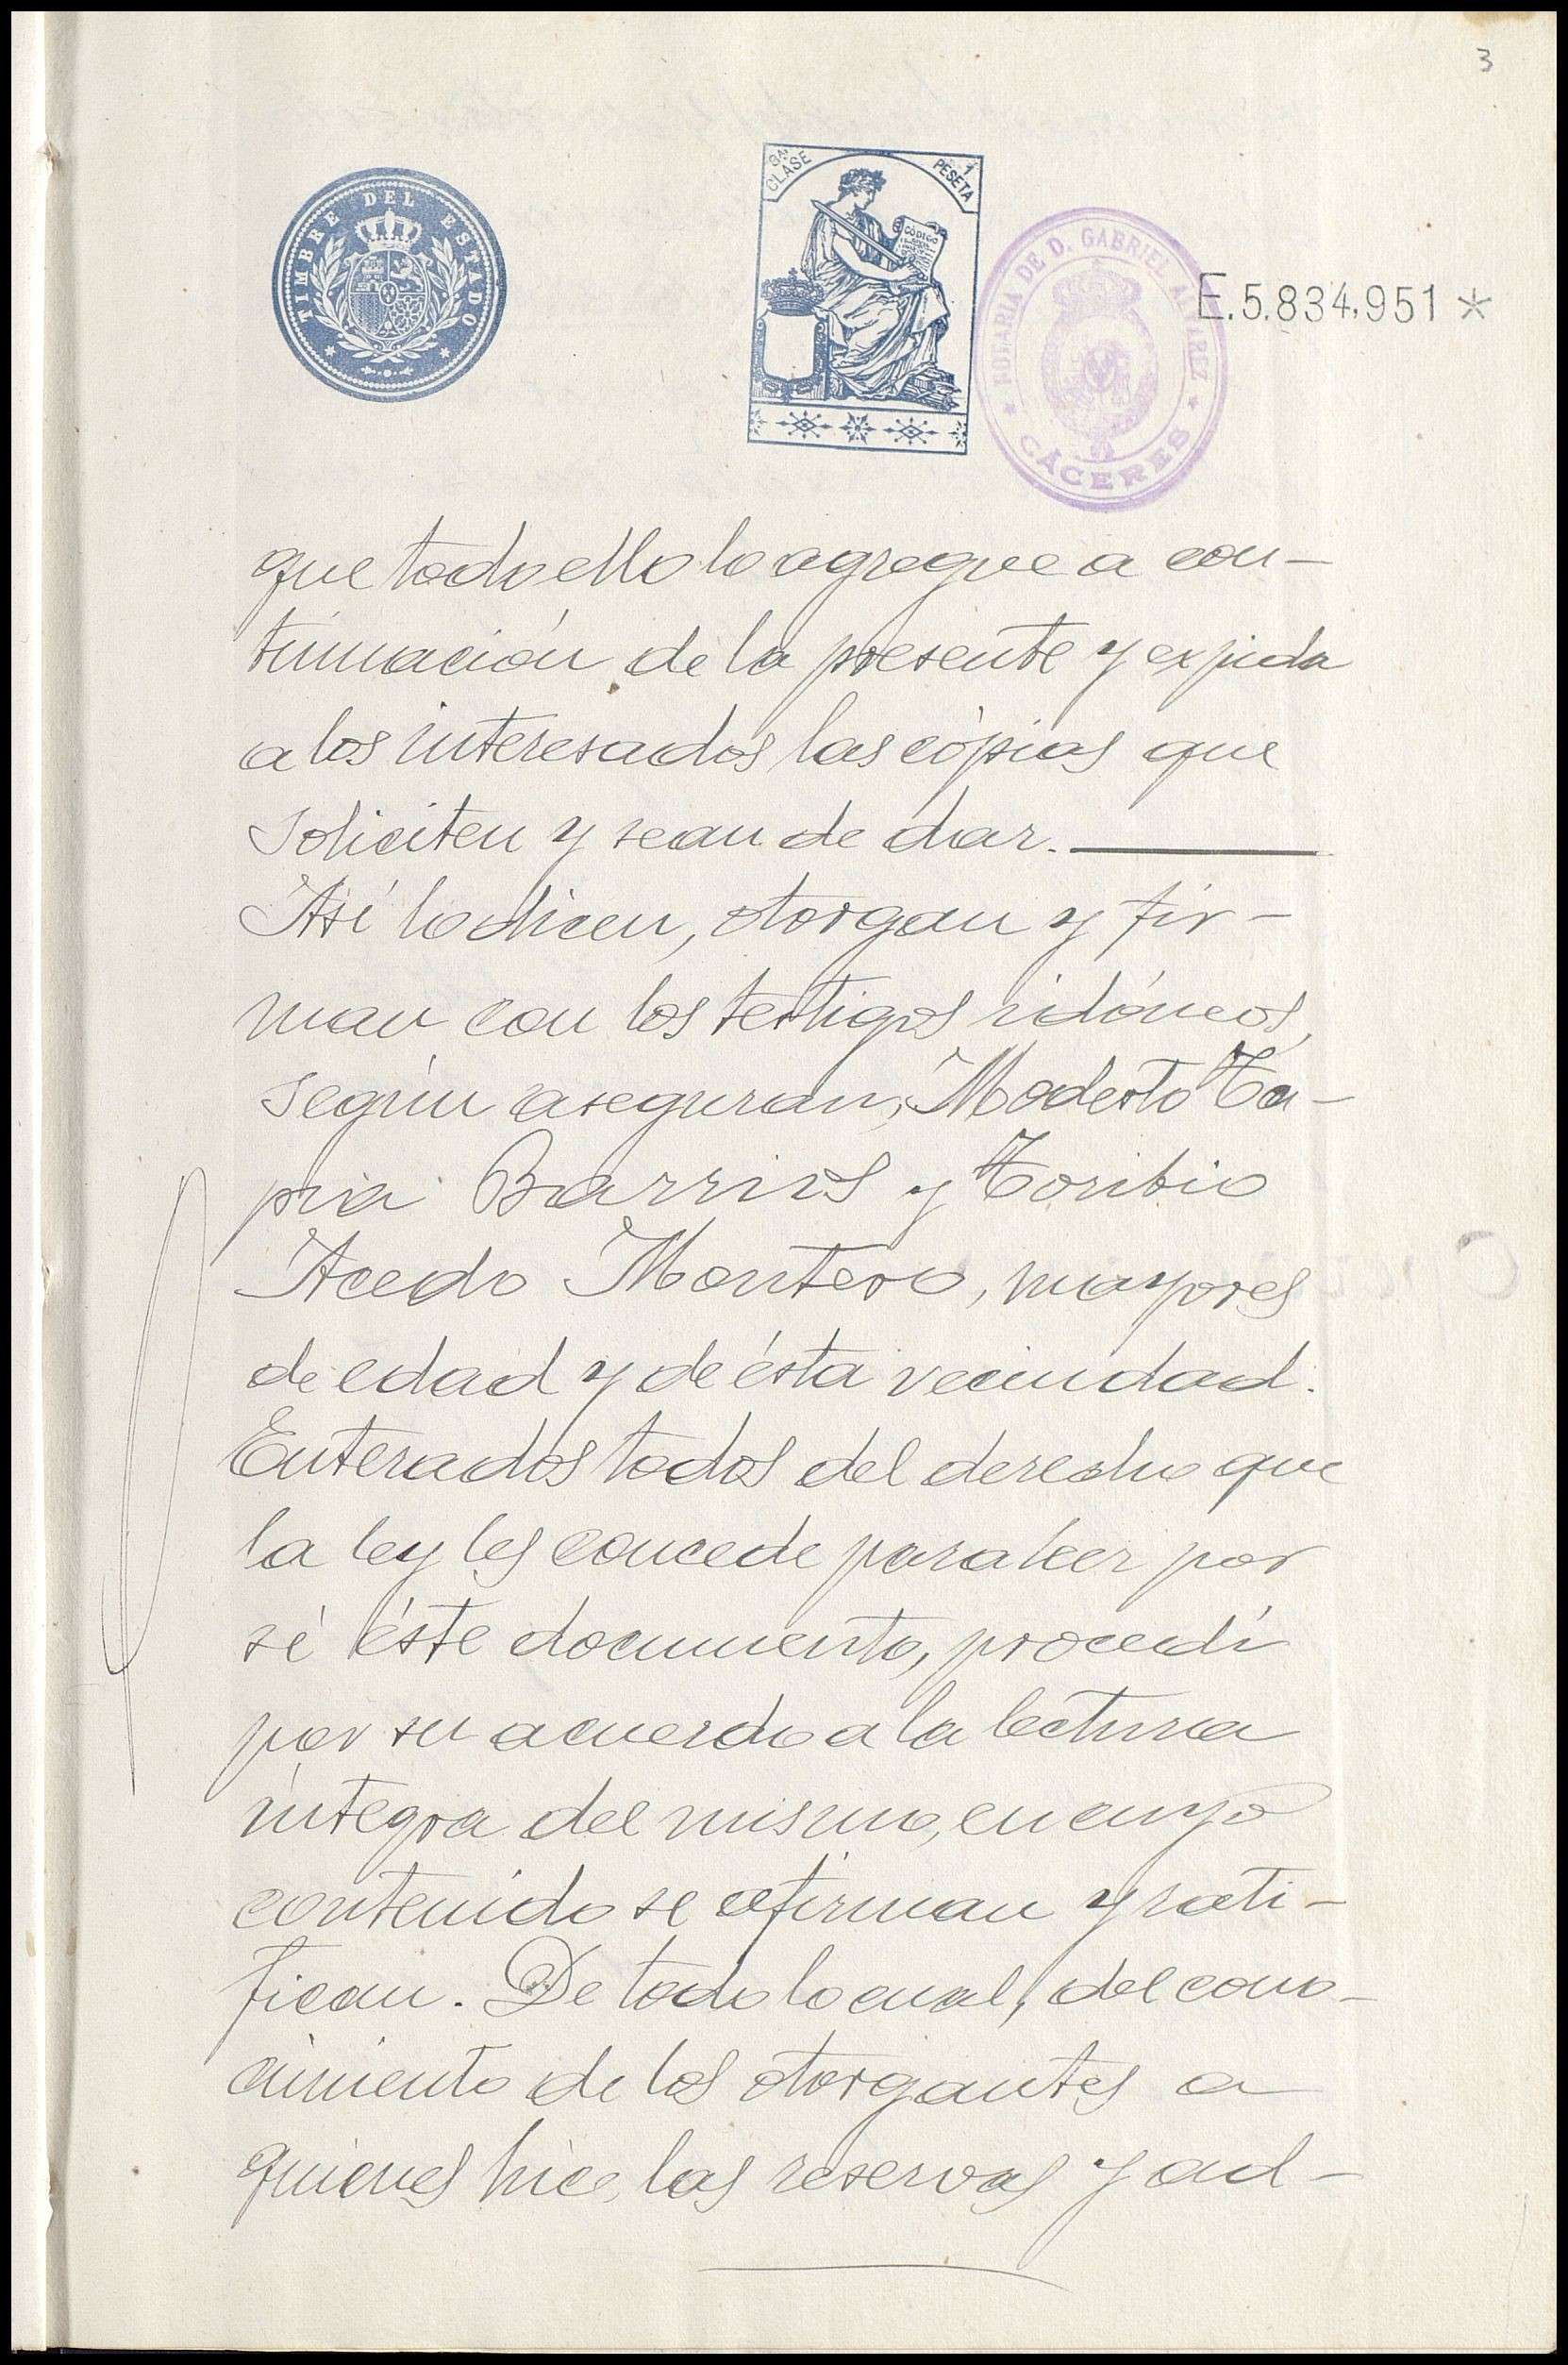 3
TIMBRE DEL ESTADO
8ª CLASE
1 PESETA
CÓDIGO
NOTARIA DE D. GABRIEL ALVAREZ
CÁCERES
E.5.834,951 *
que todo ello lo agregue a con-
tinuación de la presente y expida
a los interesados las cópias que
soliciten y sean de dar.
Así lo dicen, otorgan y fir-
man con los testigos idóneos,
según aseguran, Modesto Ta-
pia Barrios y Toribio
Acedo Montero, mayores
de edad y de ésta vecindad.
Enterados todos del derecho que
la ley les concede para leer por
sí éste documento, procedí
por su acuerdo a la lectura
integra del mismo, en cuyo
contenido se afirman y rati-
fican. De todo lo cual, del cono-
cimiento de los otorgantes a
quienes hice las reservas y ad-